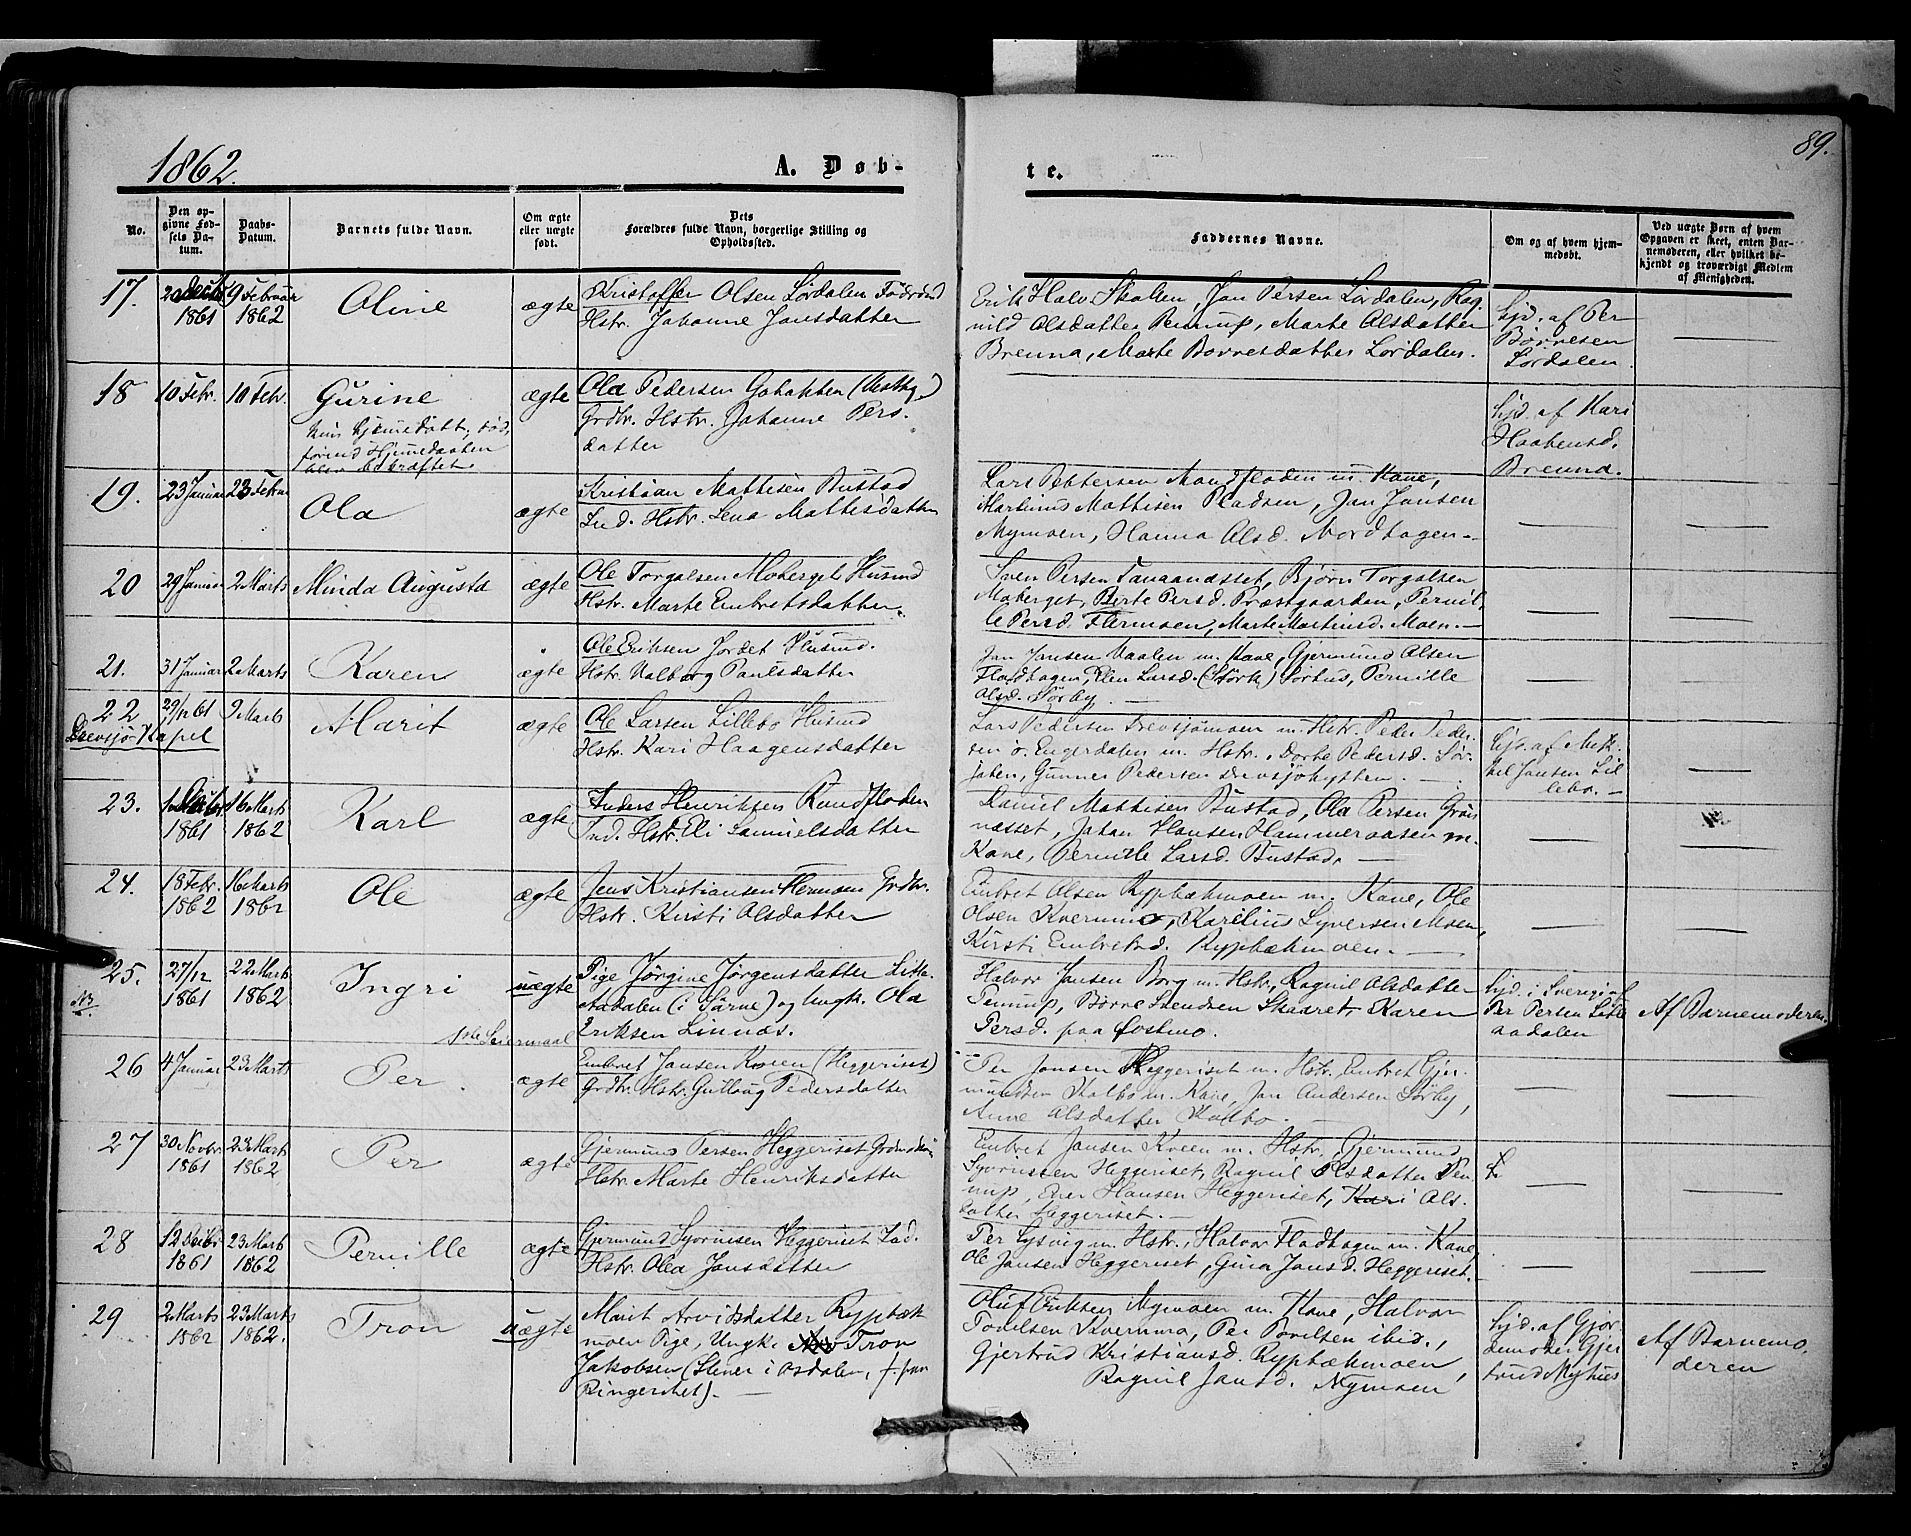 1862.
A. Døb-
te.
89.
No.
Den op-
givne Fød-
sels Da-
tum.
Daabs-
Datum.
Barnets fulde Navn.
Om ægte
eller uægte
født.
Dets
Forældres fulde Navn, borgerlige Stilling og
Opholdssted.
Faddernes Navne.
Om og af hvem hjem-
medøbt.
Ved uægte Børn af hvem
Opgaven er skeet, enten Bar-
nemoderen, eller hvilket be-
kjendt og troværdigt Medlem
af Menigheden.
17.
1861
9 Februar
1862
Oline
ægte
Kristoffer Olsen Lördalen
Hstr. Johanne Jansdatter
Erik Halv. Jan Persen Lördalen, Rag
nild Olsdatter Penrup, Marte Olsdatter
Brenna, Marte Börresdatter Lördalen.
hjd. af Per
Börresen
Lördalen
18
10 Febr.
10 Febr.
Gurine
ægte
Ola Pedersen
Grdbr. Hstr. Johanne Pers
datter
hjd. af Kari
Haakensd.
Brenna.
19.
23 Januar
23 Febr
Ola
ægte
Kristian Mattisen Bustad
Ind. Hstr. Lena Mattisdatter
Lars Pettersen Mandfloden m. Kone,
Martinus Mattisen Pladsen, Jan Jansen
Nymoen, Hanna Olsd. Nordhagen.
20
29 Januar
2 Marts
Minda Augusta
ægte
Ole Torgalsen Moberget Husmd
Hstr. Marte Embretsdatter.
Sven Persen Tanaanæsset, Björn Torgalsen
Moberget, Berte Persd. Præstgaarden, Pernil
le Persd. Flermoen, Marte Martinsd. Moen.
21.
31 Januar
2 Marts
Karen
ægte
Ole Eriksen Jordet Husmd.
Hstr. Valborg Paulsdatter
Jan Jansen Vaalen m. Kone, Gjermund Olsen
Flodhagen, Elen Larsd. Sorhus, Pernille
Olsd. Sörby.
22
Drevsjö Kapel
9 Marts
Marit
ægte
Ole Larsen Lillebo Husmd
Hstr. Kari Haagensdatter
Lars Pedersen Drevsjömoen m. Hstr. Peder Peder
sen ö. Engerdalen m. Hstr., Dorte Pedersd. Sör
Gunner Pedersen Drevsjöhytten.
hjd. af Mik
kel Jansen Lil
lebo.
23.
1861
16 Marts
1862
Karl
ægte
Anders Henriksen Rundfloden
Ind. Hstr. Eli Samuelsdatter
Daniel Mattisen Bustad, Ola Persen Grön
næsset, Johan Hansen Hammeraasen m.
Kone, Pernille Larsd. Bustad.
24.
18 Febr.
1862
16 Marts
1862
Ole
ægte
Jens Kristiansen Flermoen Grdbr.
Hstr. Kirsti Olsdatter
Embret Olsen Rypbækmoen m. Kone, Ole
Olsen Kvermmo, Karelius Syversen Moen,
Kirsti Embretsd. Rypbækmoen.
25.
NB
27/12
1861
22 Marts
1862
Ingri
uægte
Pige Jörgine Jörgensdatter Lille
Aadalen (i Särne) og Ungk. Ola
Eriksen Linnæs.
1ste Leiermaal
Halvor Jansen Borg m. Hstr, Ragnil Olsdatter
Penrup, Börre Svendsen Skaaret, Karen
Persd. paa Östmo.
hjd. i Sverige af
Per Persen Lille
aadalen
Af Barnemoderen.
26
4 Januar
23 Marts
Per
ægte
Embret Jansen Kveen (Heggeriset)
Grdbr. Hstr. Gullaug Pedersdatter
Per Jansen Heggeriset m. Hstr, Embret Gjer
mundsen Kolbo m. Kone, Jan Andersen Sörby,
Anne Olsdatter Kolbo.
27
30 Novbr.
1861
23 Marts
1862
Per
ægte
Gjermund Persen Heggeriset
Hstr. Marte Henriksdatter
Embret Jansen Kveen m. Hstr, Gjermund
Syvrinsen Heggeriset, Ragnil Olsdatter Pen
rup, Ener Hansen Heggeriset, Kari Ols
datter Heggeriset.
28
12 Decbr
1861
23 Marts
1862
Pernille
ægte
Gjermund Syvrinsen Heggeriset Ind.
Hstr. Olea Jansdatter
Per Lysvig m. Hstr., Halvor Flodhagen m. Kone,
Ole Jansen Heggeriset, Gina Jansd. Heggeriset.
29
2 Marts
1862
23 Marts
1862.
Tron
uægte
Marit Arvidsdatter Rypbæk
moen Pige, Ungk. Tron
Jakobsen (Stener i Osdalen, f. paa
Ringeriket).
Oluf Eriksen Nymoen m. Kone, Halvor
Povelsen Kvermmo, Per Povelsen ibid.,
Gjertrud Kristiansd. Rypbækmoen,
Ragnil Jansd. Nymoen
hjd. af Gjor
demoder Gjer
trud Myhus
Af Barnemo,
deren